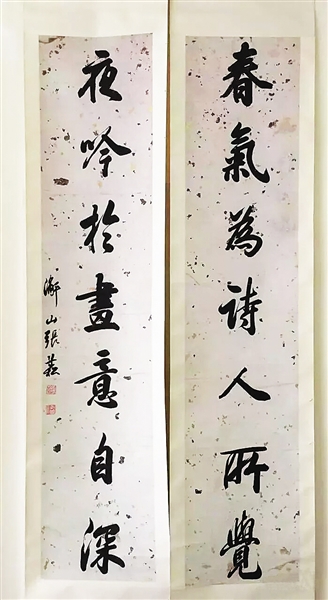 春氣為詩人所覺
夜吟於畫意自深
山張